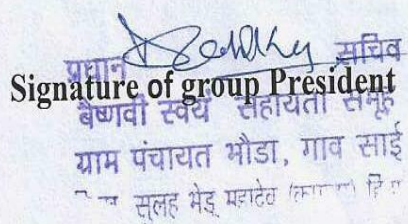 प्रधान सचिव
Signature of group President
बैष्णवी स्वयं सहायता समूह
ग्राम पंचायत भौडा, गाव साई
सुलह भेडू महादेव